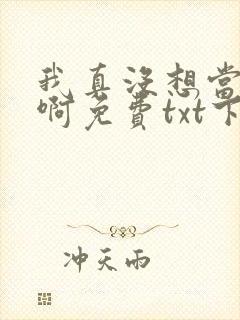 我真没想当
啊免费txt下
冲天雨